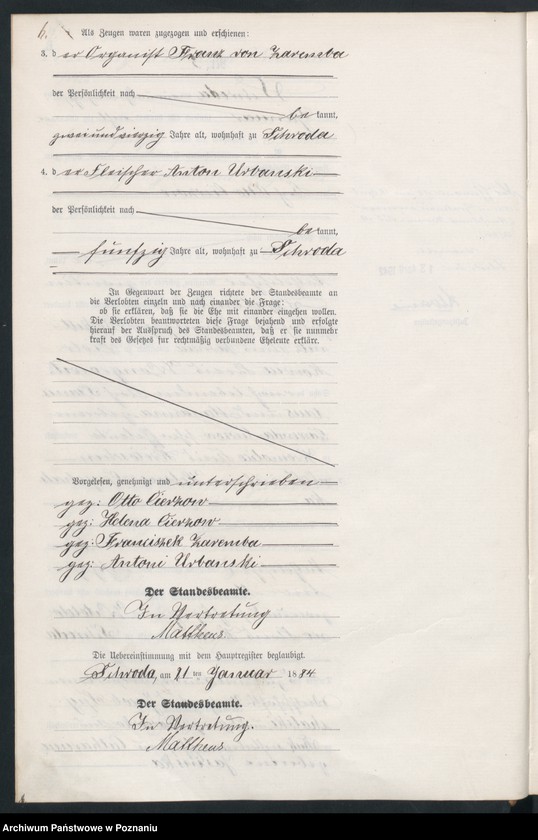 6.
Als Zeugen waren zugezogen und erschienen:
3. der Organist Franz von Zaremba
der Persönlichkeit nach
bekannt,
zweiundvierzig Jahre alt, wohnhaft zu Schroda
4. der Fleischer Anton Urbanski
der Persönlichkeit nach
bekannt,
fünfzig Jahre alt, wohnhaft zu Schroda
In Gegenwart der Zeugen richtete der Standesbeamte an
die Verlobten einzeln und nach einander die Frage:
ob sie erklären, daß sie die Ehe mit einander eingehen wollen.
Die Verlobten beantworteten diese Frage bejahend und erfolgte
hierauf der Ausspruch des Standesbeamten, daß er sie nunmehr
kraft des Gesetzes für rechtmäßig verbundene Eheleute erkläre.
Vorgelesen, genehmigt und unterschrieben
gez: Otto Cierzow
gez: Helena Cierzow
gez: Franciszek Zaremba
gez: Antoni Urbanski
Der Standesbeamte.
In Vertretung
Mattheus
Die Uebereinstimmung mit dem Hauptregister beglaubigt.
Schroda, am 21 ten Januar 1884
Der Standesbeamte.
In Vertretung.
Mattheus
Archiwum Państwowe w Poznaniu